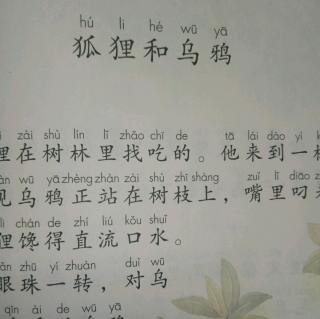 hú li hé wū yā
狐狸和乌鸦
zài shù lín lǐ zhǎo chī de tā lái dào yì
狸在树林里找吃的。他来到一
wū yā zhèng zhàn zài shù zhī shàng zuǐ lǐ diāo
见乌鸦正站在树枝上，嘴里叼
li chán de zhí liú kǒu shuǐ
狸馋得直流口水。
yǎn zhū yí zhuàn duì wū
眼珠一转，对乌
qīn ài de wū yā